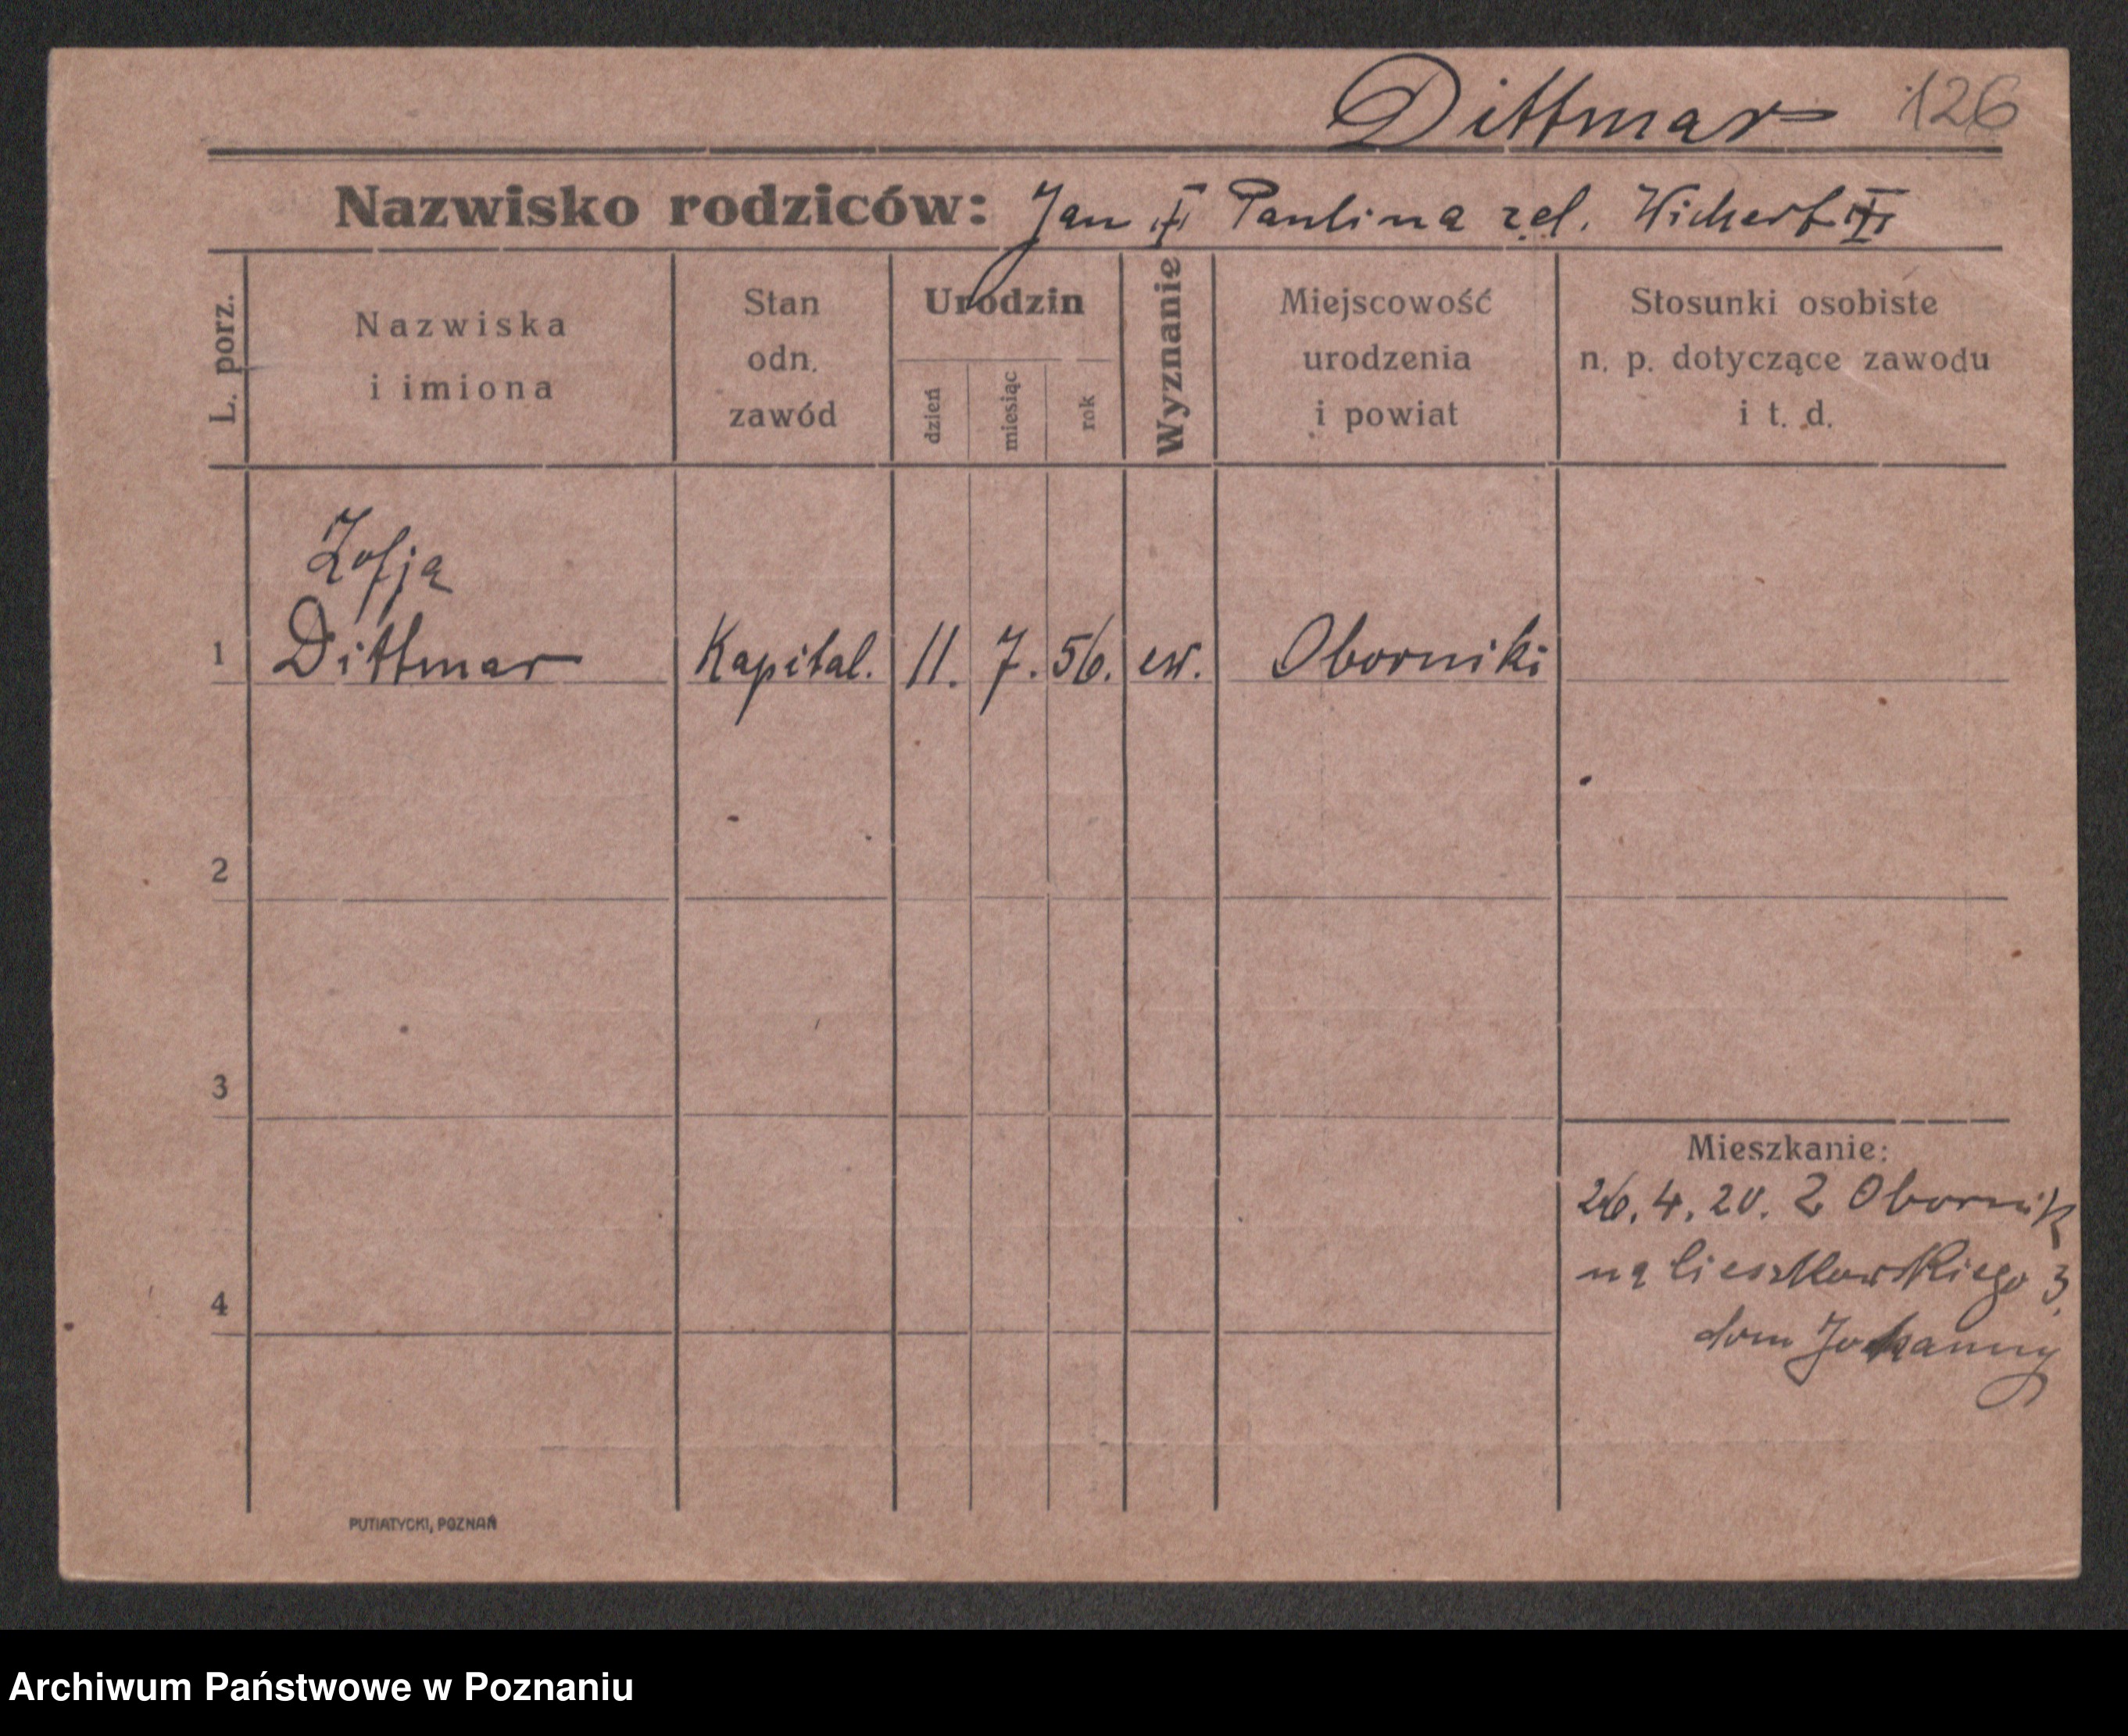 Dittmar 126
Nazwisko rodziców: Jan Paulina Wichert
L. porz.
Nazwiska
i imiona
Stan
odn.
zawód
Urodzin
dzień
miesiąc
rok
Wyznanie
Miejscowość
urodzenia
i powiat
Stosunki osobiste
n. p. dotyczące zawodu
i t. d.
Zofja
1 Dittmar Kapital. 11. 7. 56. ew. Oborniki
2
3
4
Mieszkanie:
26. 4. 20. Z Obornik
na Cieszkowskiego 3.
dom
PUTIATYCKI, POZNAŃ
Archiwum Państwowe w Poznaniu